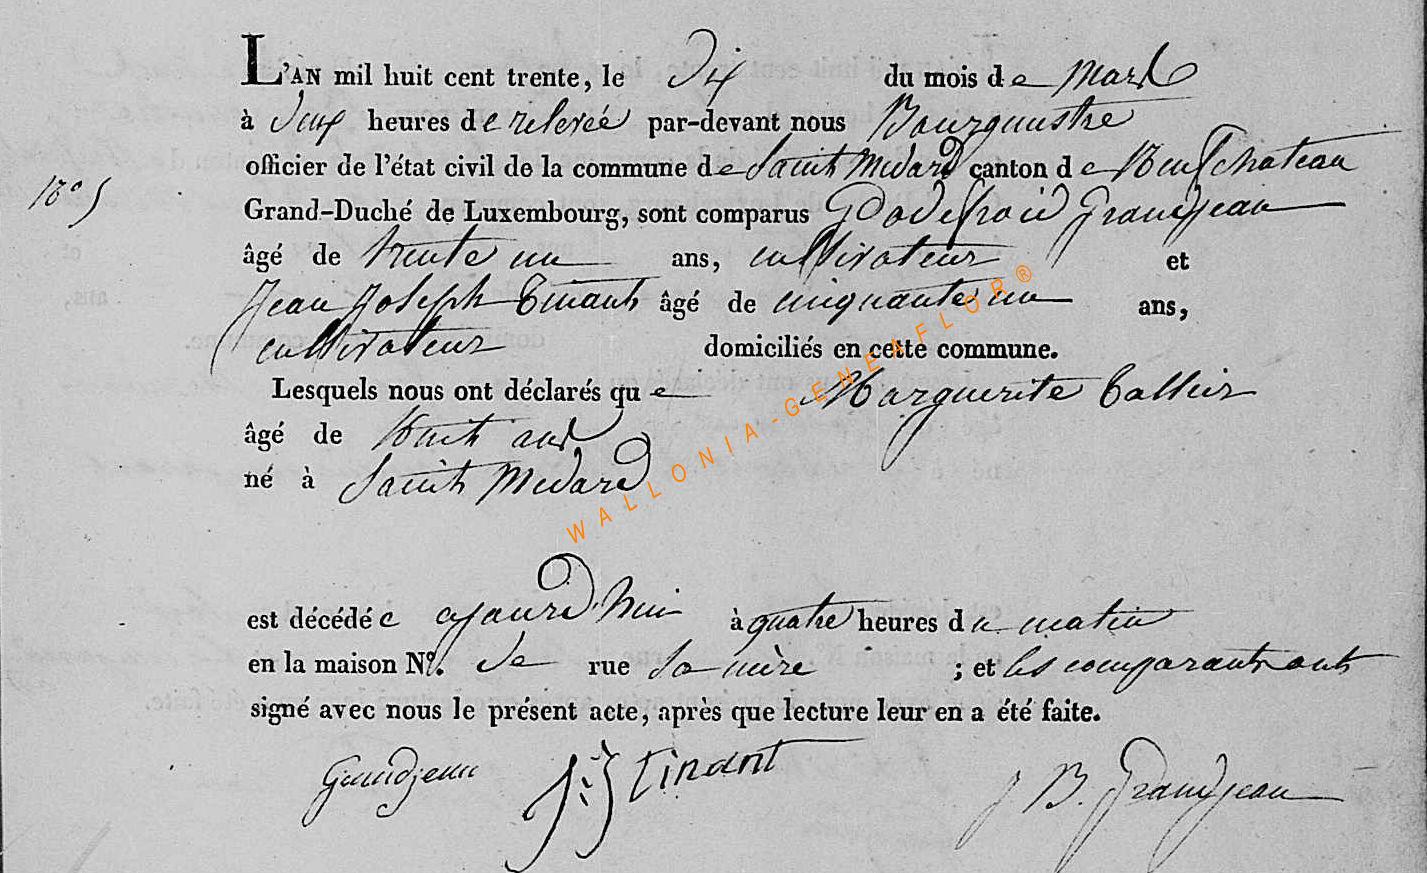 L'AN mil huit cent trente, le Dix du mois de Mars
à Deux heures de relevée par-devant nous Bourguustre
officier de l'état civil de la commune de Saint Medard canton de Neufchateau
N° 5
Grand-Duché de Luxembourg, sont comparus Gdodefroid Grandjean
âgé de trente un ans, cultivateur et
Jean Joseph Tinant âgé de cinquante un ans,
cultivateur domiciliés en cette commune.
Lesquels nous ont déclarés que Marguerite
âgé de huit ans
né à Saint Medard
est décédée ajourd'hui à quatre heures du matin
en la maison N°. de rue sa mère ; et les comparants ont
signé avec nous le présent acte, après que lecture leur en a été faite.
Grandjean JJ tinant J B. Grandjean
WALLONIA-GENEAFLOR®